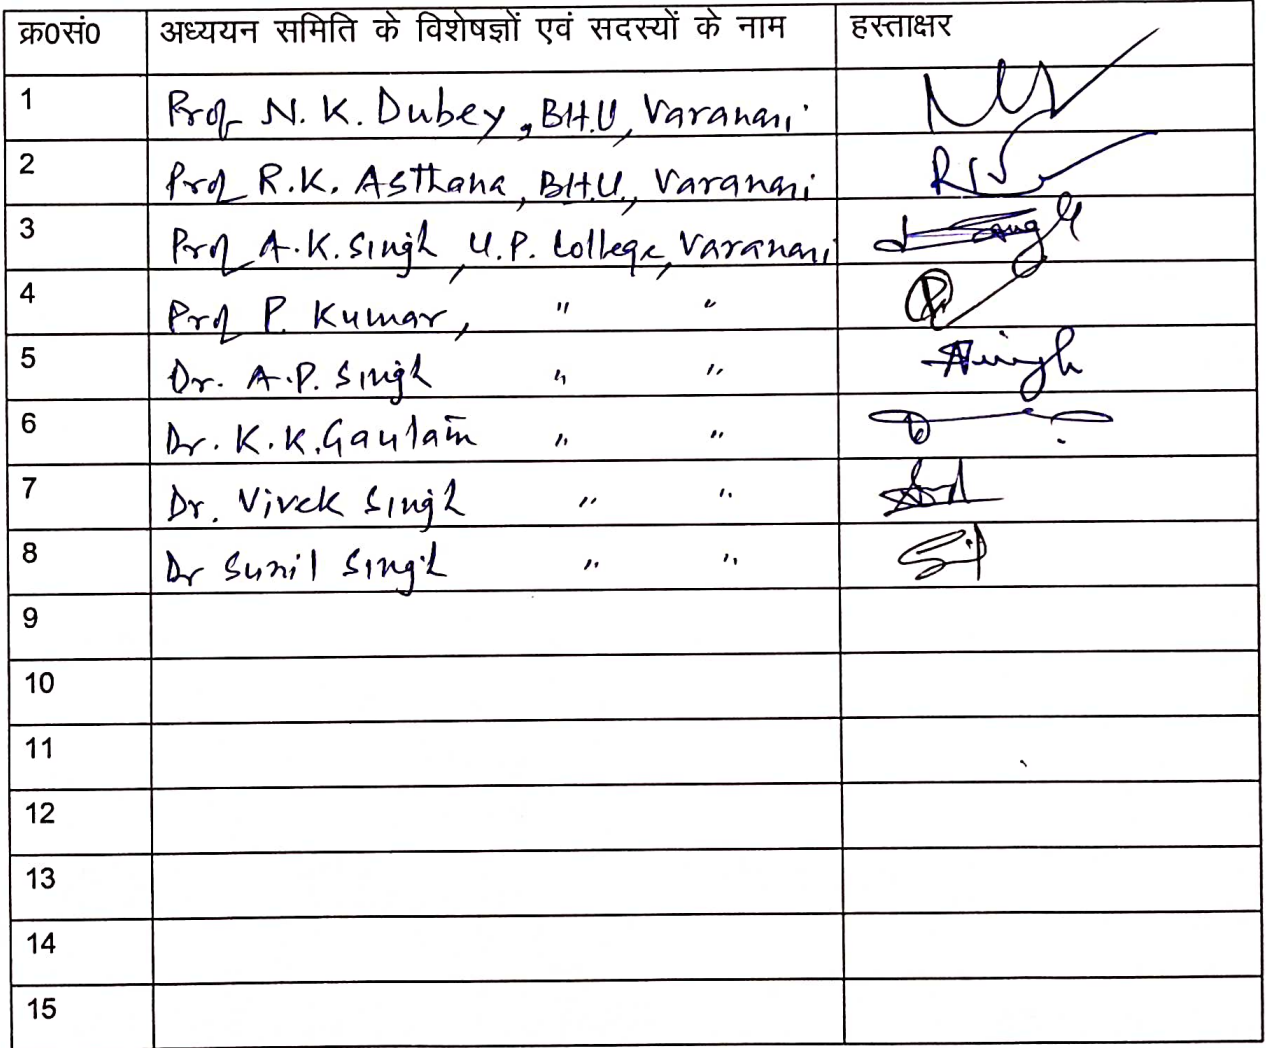 क्र0सं0 अध्ययन समिति के विशेषज्ञों एवं सदस्यों के नाम हस्ताक्षर
1 Prof N. K. Dubey, B.H.U, Varanasi
2 Prof R.K. Asthana, B.H.U., Varanasi
3 Prof A.K. Singh, U.P. College, Varanasi
4 Prof P. Kumar, " "
5 Dr. A.P. Singh " "
6 Dr. K.K. Gautam " "
7 Dr. Vivek Singh " "
8 Dr Sunil Singh " "
9
10
11
12
13
14
15